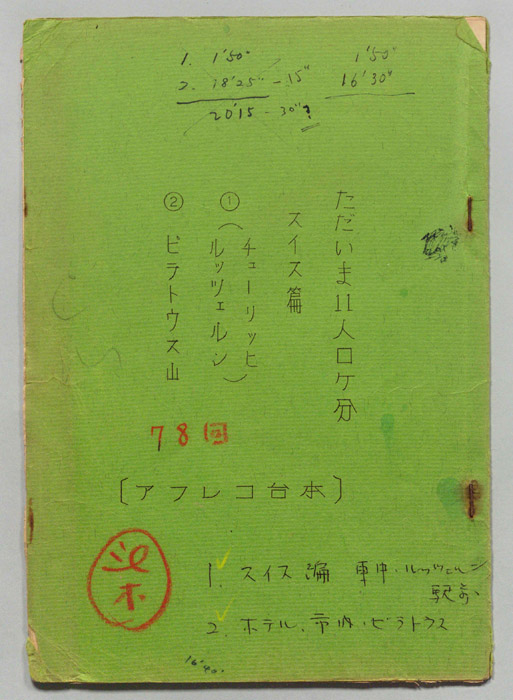 1. 1'50"
2. 18'25" - 15"
20'15 - 30"?
1'50"
16'30"
ただいま11人ロケ分
スイス篇
①(チューリッヒ
ルッツェルン)
② ピラトウス山
78回
〔アフレコ台本〕
1. スイス編 車中・ルッツェルン
駅前
2. ホテル、市内・ピラトウス
16'40"